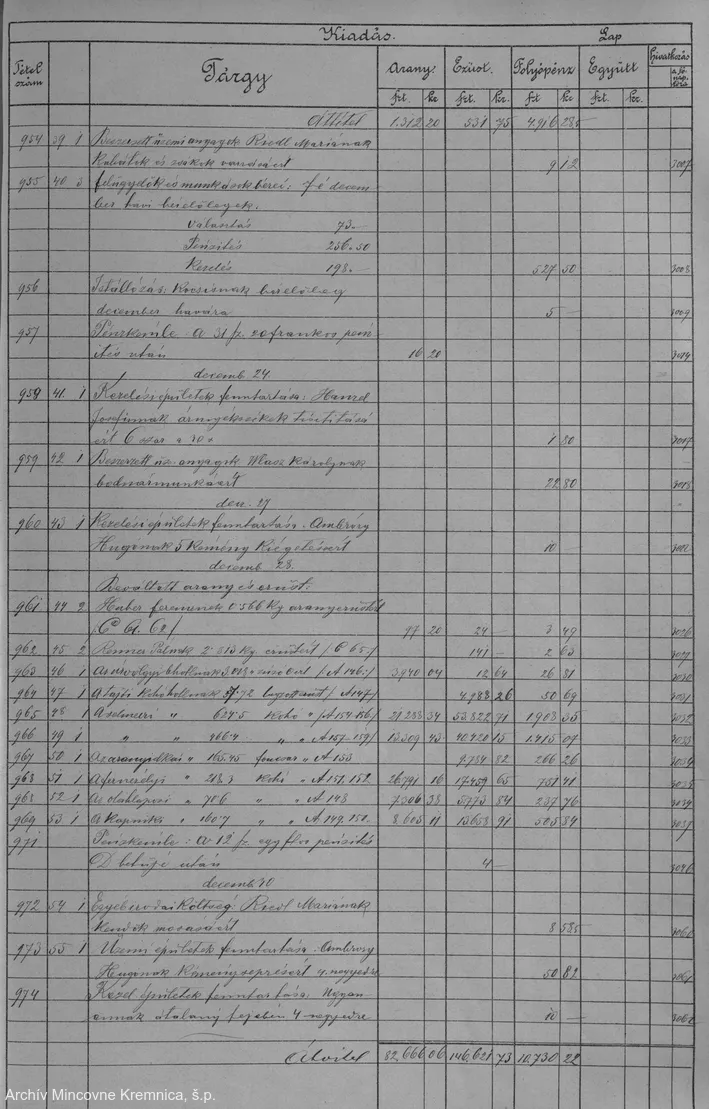 Kiadás. Lap
Tétel szám Tárgy Arany Ezüst. Folyópénz Együtt Hivatkozás a fő naplóra
frt. kr frt. kr. frt kr frt. kr.
Áttétel 1.312 20 531 75 4.916 28,5
954 39 1 Beszerzett üzemi anyagok Riedl Mariának
Kabátok és zsákok varrásáért 9 12 3007
955 40 3 felügyelők és munkások bérei: fő decem-
ber havi bérelőlegek.
Választás 73.-
Pénzités 256.50
Kezelés 198.- 527 50 3008
956 Istállózás: Kocsisnak bérelőleg
december havára 5 - 3009
957 Pénzkémle a 31 fz. 20 frankos pénz-
ités után 16 20 3014
decemb. 24.
959 41. 1 Kezelési épületek fenntartása: Hanzel
Josefinnak árnyékszékek tisztitásá-
ért 6 1 80 3017
959 42 1 Beszerzett üz. anyagok Wlasz Károlynak
bodnármunkáért 22 80 3018
dec. 27
960 43 1 Kezelési épületek fenntartása. Ambrózy
Hugonak 5 kémény kiégetéséért 10 - 3022
decemb. 28.
Beváltott arany és ezüst.
961 44 2 Haber 0.566 kg aranyezüstért
97 20 24 - 3 49 3026
962 45 2 ezüstért /C 65./ 141 - 2 63 3027
963 46 1 /A 146./ 3.940 04 12 64 26 81 3030
964 47 1 A tajói kohóhollnak /A 147/ 4.988 26 50 69 3031
965 48 1 A selmeczi " 624.5 kohó " /A 154-156/ 21 288 34 53.822 71 1.908 35 3032
966 49 1 " " 466.4 " " /A 157-159/ 13.309 43 40.420 15 1.415 07 3033
967 50 1 Az aranyidkai " 165.45 foncsor " A 153 9.734 82 266 26 3034
968 51 1 A fernezélyi " 218.3 kohó " A 151. 152 26.791 16 17.459 65 751 41 3035
968 52 1 Az oláhlaposi " 70.6 " " A 148 7.306 38 5.773 84 237 76
969 53 1 A kapniki " 160.7 " " A 149. 150. 8.605 11 13.658 91 505 84 3037
971 Pénzkémle: a 12 fz. egy ftos pénzités
D betüjü után 4 - 3046
decemb. 30
972 54 1 Egyéb irodai költség: Riedl Mariának
kendők mosásáért 8 58,5 3060
973 55 1 Üzemi épületek fenntartása. Ambrózy
Hugonak kéményseprésért 4. negyedre 50 82 3061
974 Kezel. épületek fenntartása: Ugyan-
annak átalány fejében 4. negyedre 10 - 3062
Átvitel 82.666 06 146.621 73 10.730 22
Archív Mincovne Kremnica, š.p.